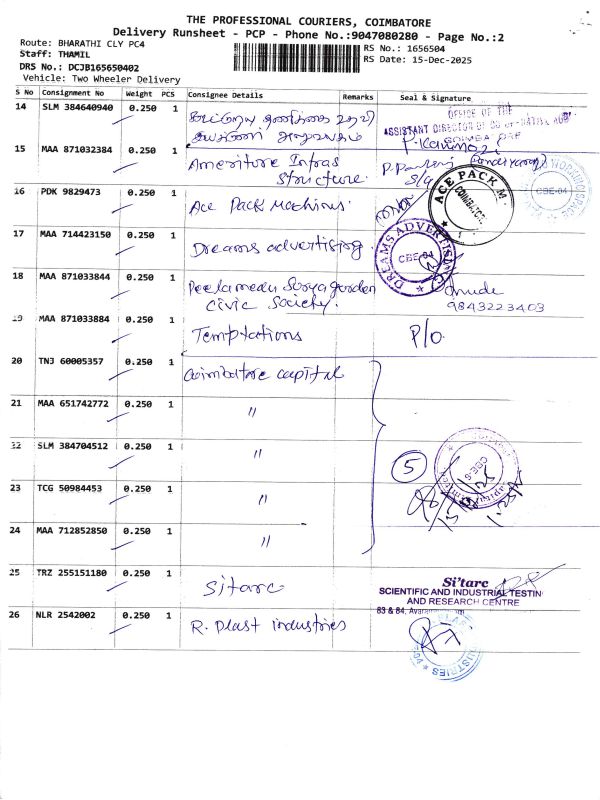 THE PROFESSIONAL COURIERS, COIMBATORE
Delivery Runsheet - PCP - Phone No.:9047080280 - Page No.:2
Route: BHARATHI CLY PC4
Staff: THAMIL
DRS No.: DCJB165650402
Vehicle: Two Wheeler Delivery
RS No.: 1656504
RS Date: 15-Dec-2025
S No Consignment No Weight PCS Consignee Details Remarks Seal & Signature
14 SLM 384640940 0.250 1
OFFICE OF THE
ASSISTANT DIRECTOR OF CO OPERATIVE AUDIT
15 MAA 871032384 0.250 1 Ameriture Infras
Structure.
CBE-04
16 PDK 9829473 0.250 1 Ace Pack Machines.
ACE PACK M.
COIMBATORE
17 MAA 714423150 0.250 1 Dreams advertising.
DREAMS ADVERTISING
CBE-04
18 MAA 871033844 0.250 1 Peelamedu Surya garden
Civic Society.
9843223403
19 MAA 871033884 0.250 1 Temptations P/O.
20 TNJ 60005357 0.250 1 Coimbatore capital
21 MAA 651742772 0.250 1 "
22 SLM 384704512 0.250 1 "
5
CBE-6
23 TCG 50984453 0.250 1 "
24 MAA 712852850 0.250 1 "
25 TRZ 255151180 0.250 1 Sitarc
Si'tarc
SCIENTIFIC AND INDUSTRIAL TESTIN
AND RESEARCH CENTRE
83 & 84,
26 NLR 2542002 0.250 1 R. Plast industries